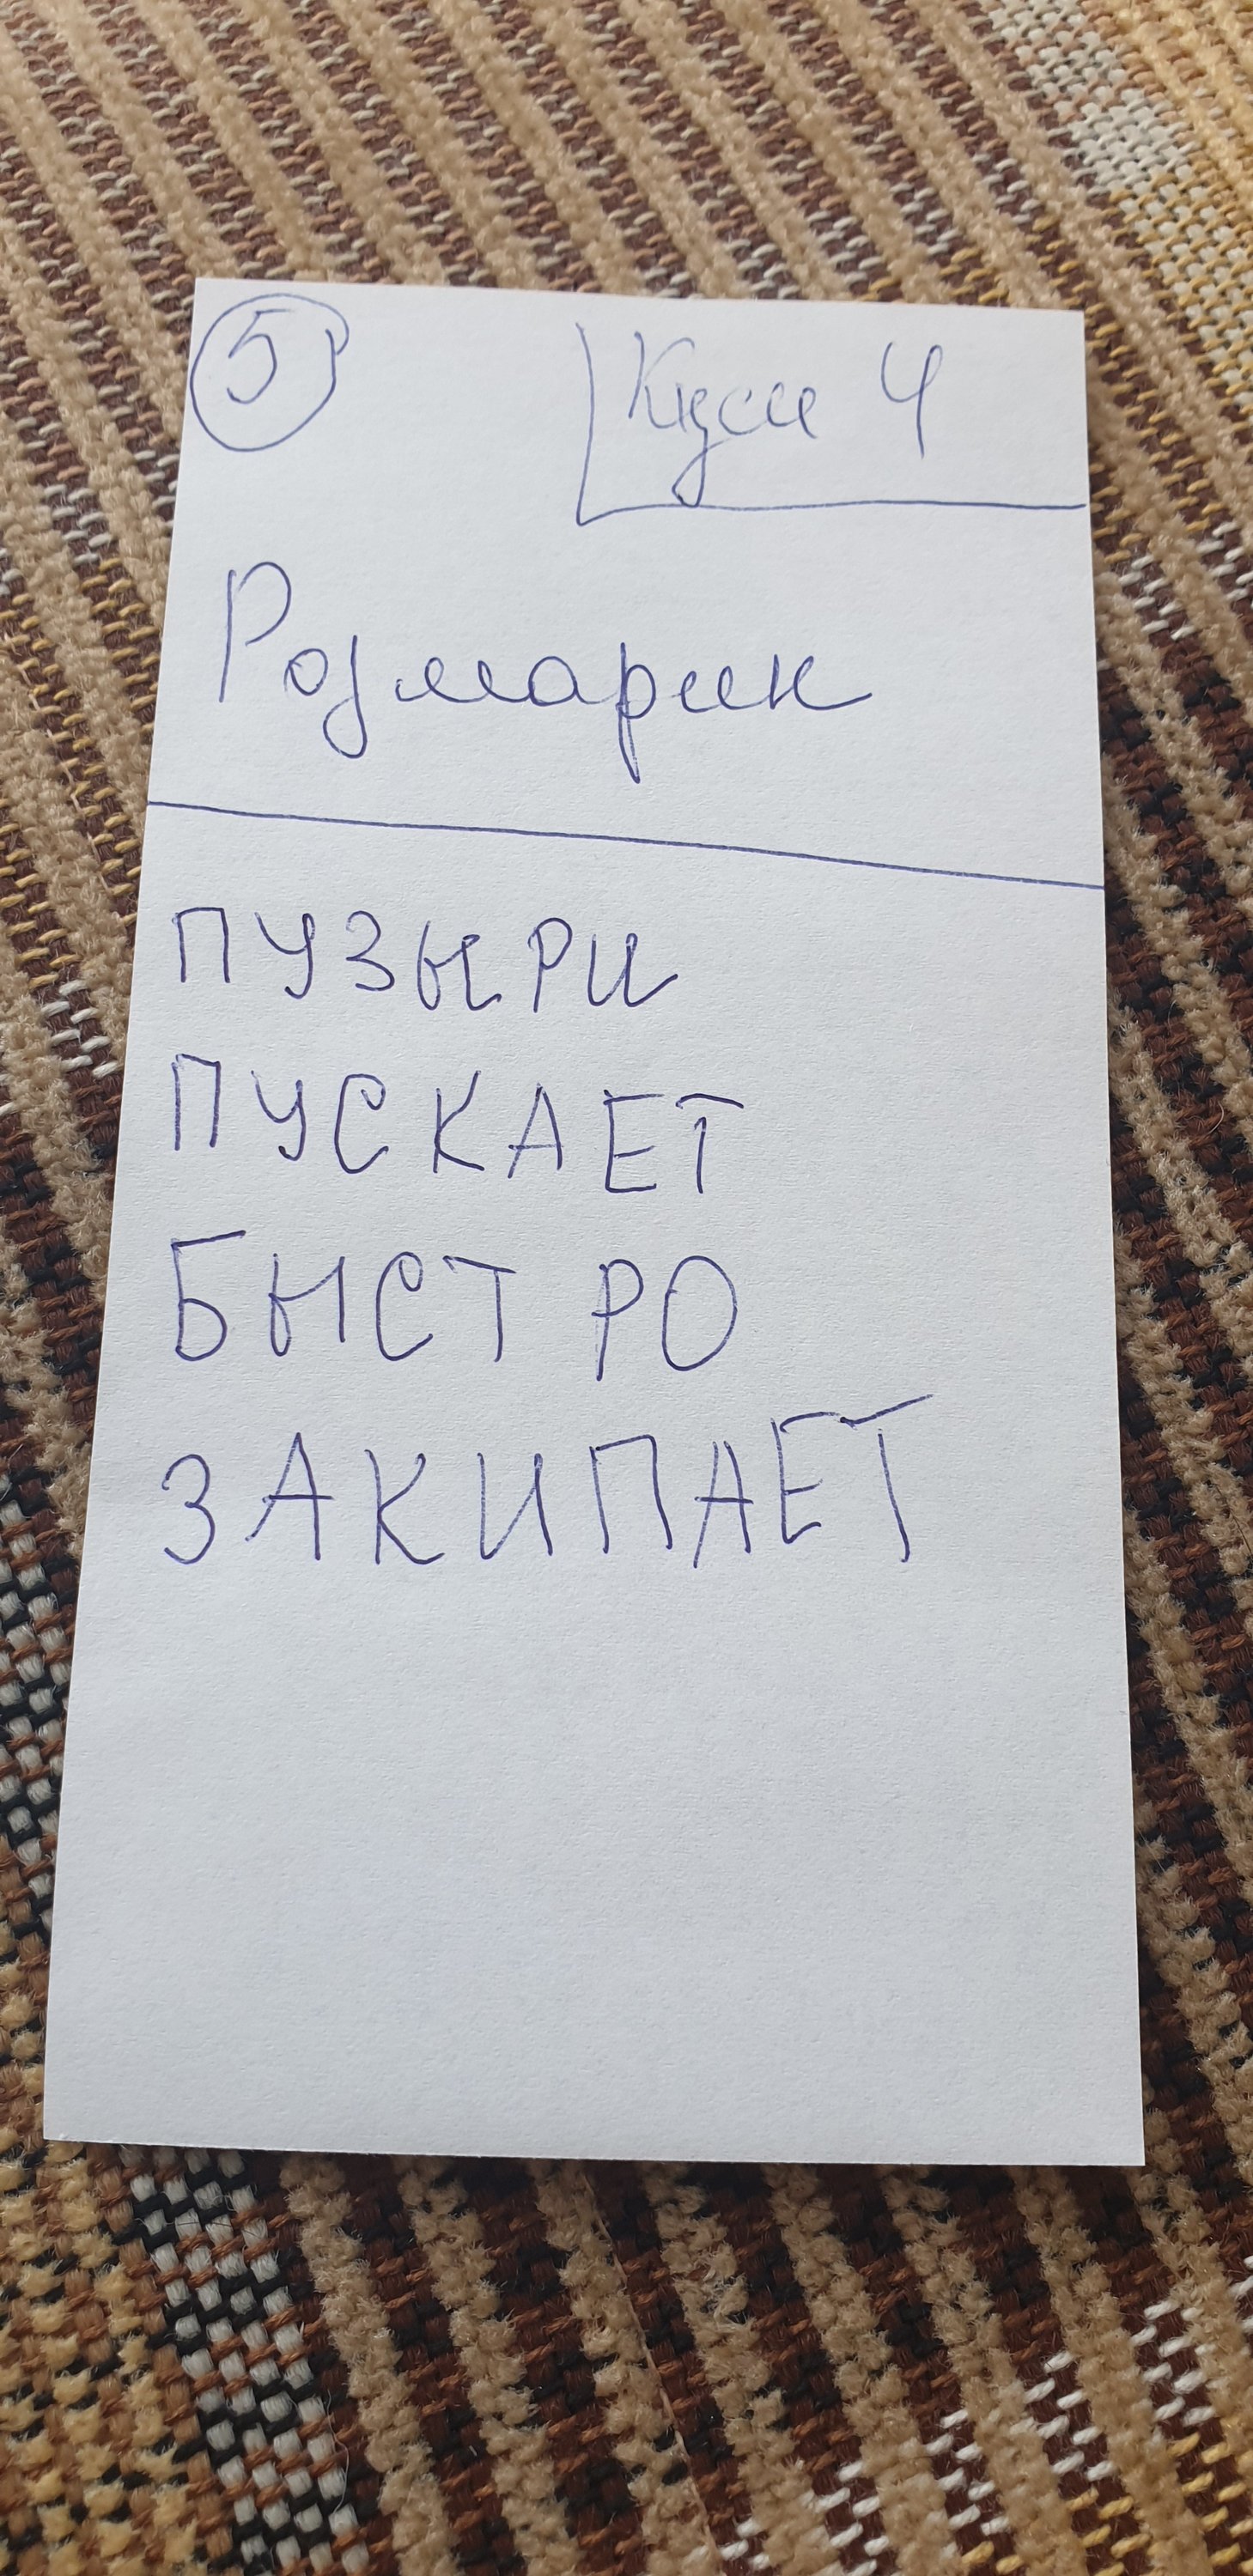 5
Куси 4
Розмарин
ПУЗЫРИ
ПУСКАЕТ
БЫСТРО
ЗАКИПАЕТ